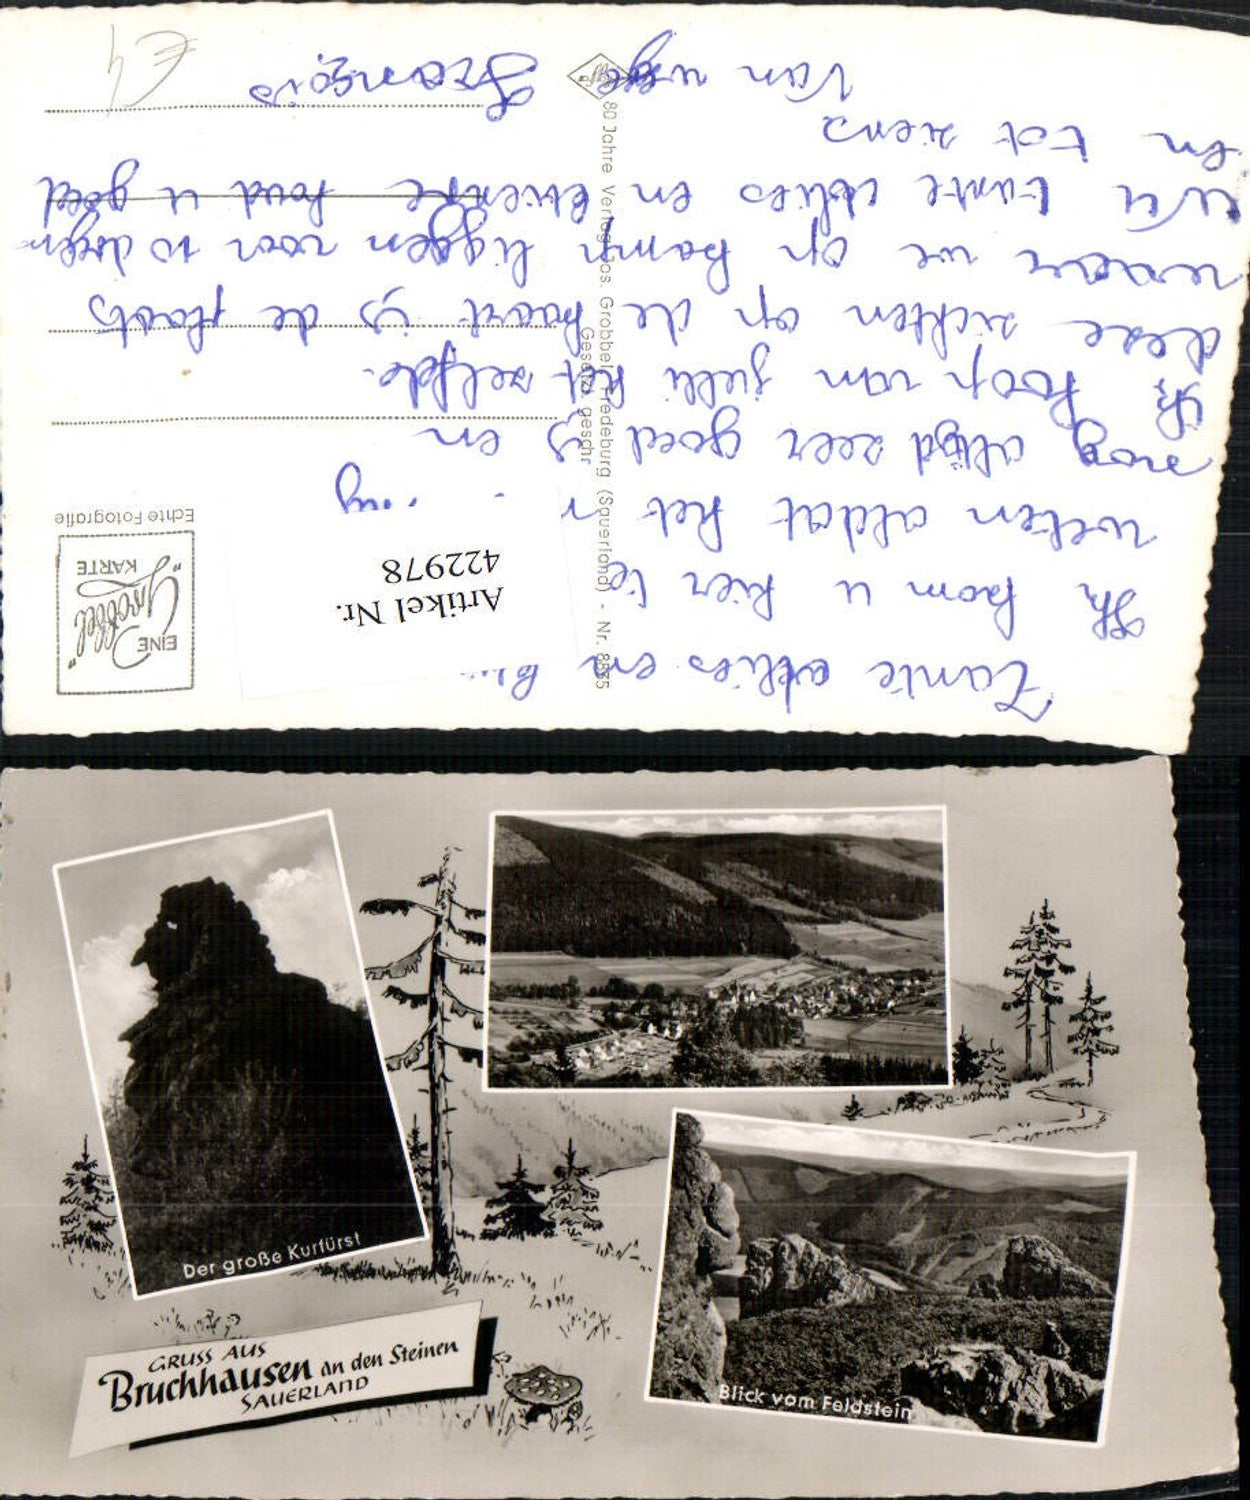 Tante Alies en
Ik kom u hier
weten aldat het
nog altijd zeer goed is en
Ik hoop van jullie het zelfde.
deze zichten op de kaart is de plaats
waar we op kamp liggen voor 10 dagen
Wel tante Alies en houd u goed
en tot ziens
Van uwe
François
Artikel Nr.
422978
EINE
"Grobbel"
KARTE
Echte Fotografie
80 Jahre Verlag Jos. Grobbel, Fredeburg (Sauerland) - Nr. 8835
Gesetzl. geschr.
€4
Der große Kurfürst
Blick vom Feldstein
GRUSS AUS
Bruchhausen an den Steinen
SAUERLAND